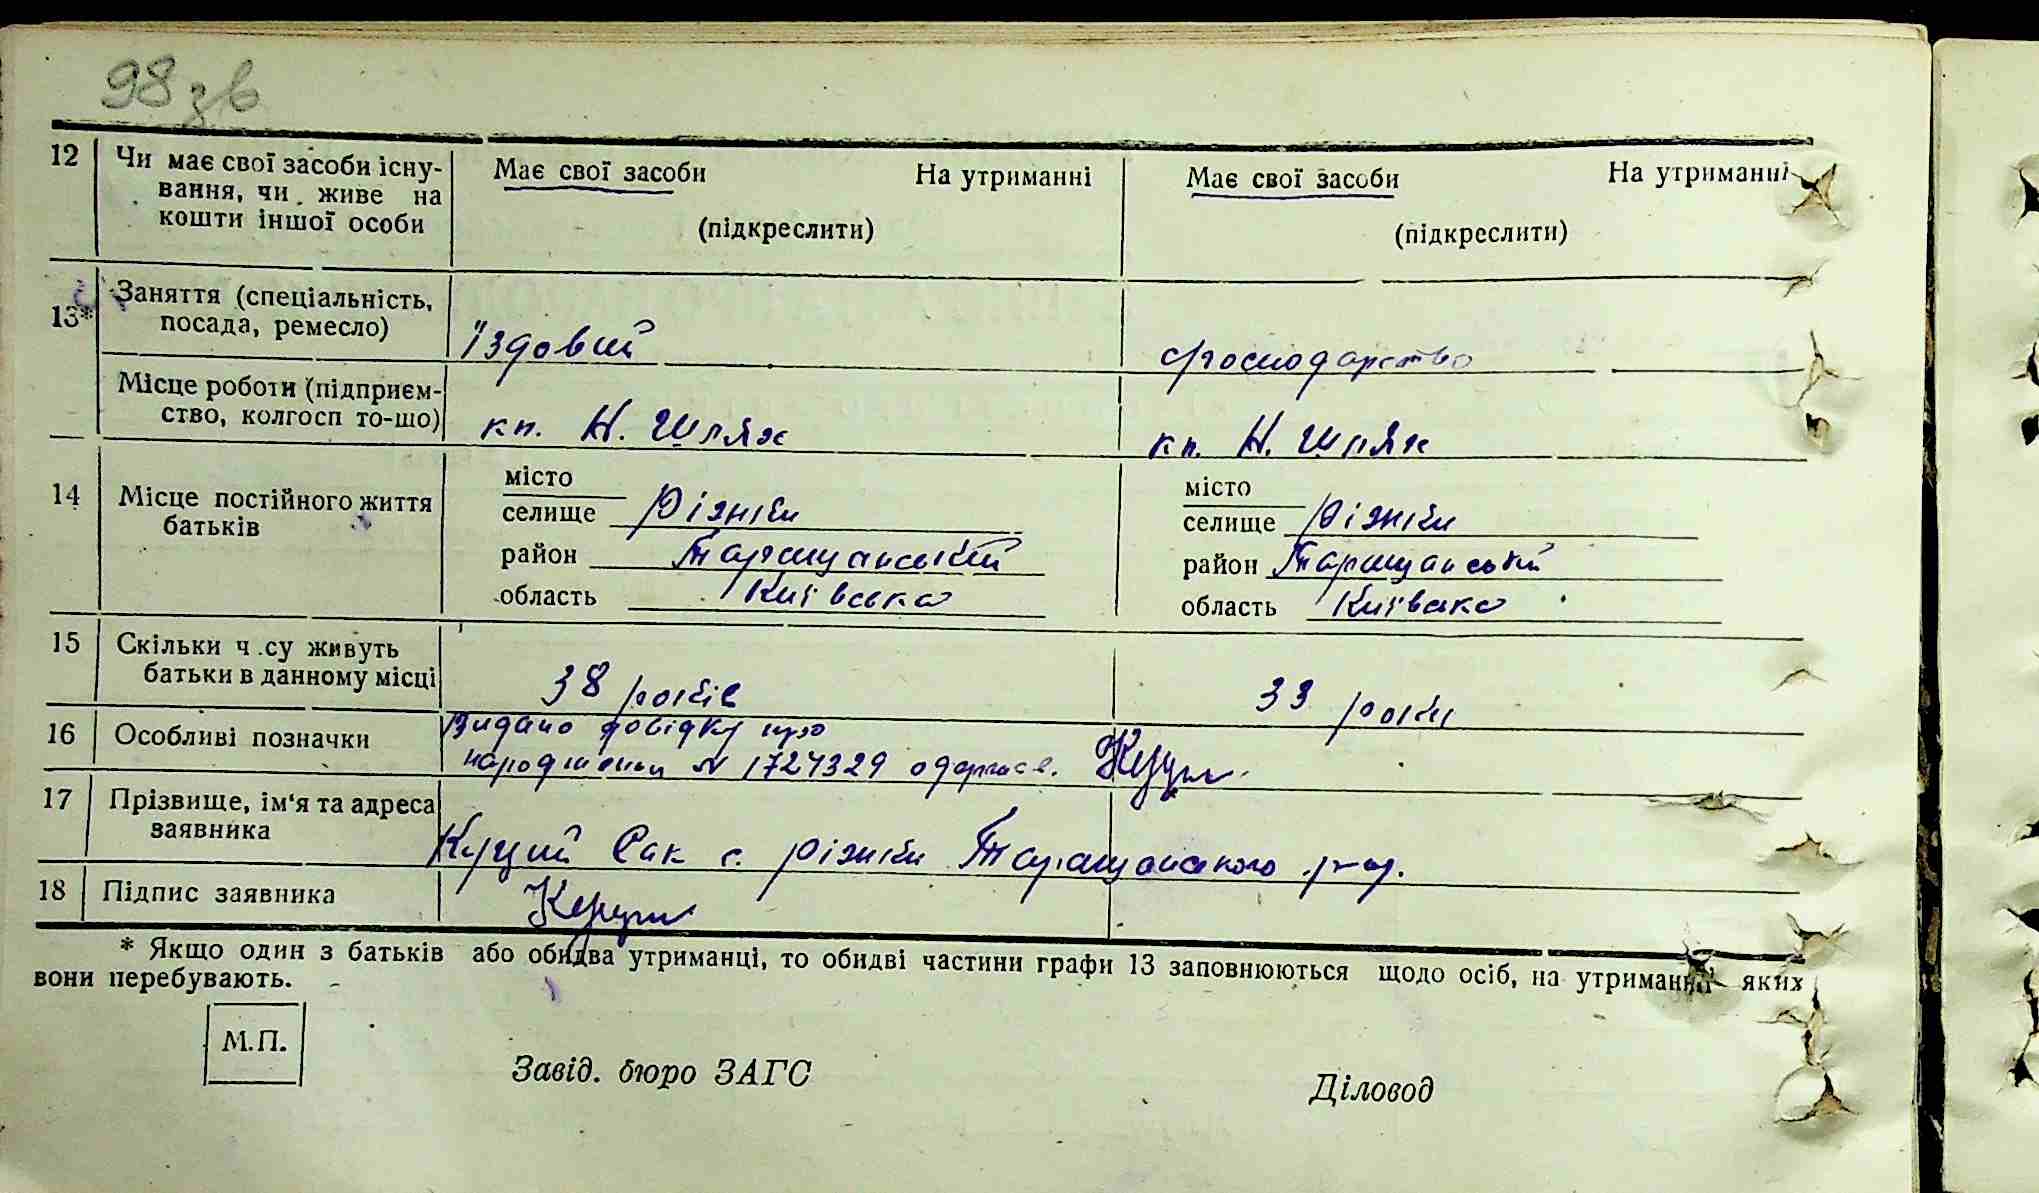 98 зв
12 Чи має свої засоби існу-
вання, чи живе на
кошти іншої особи
Має свої засоби На утриманні
(підкреслити)
Має свої засоби На утриманні
(підкреслити)
13* Заняття (спеціальність,
посада, ремесло)
Їздовий
господарство
Місце роботи (підприєм-
ство, колгосп то-що)
кп. Н. Шлях
кп. Н. Шлях
14 Місце постійного життя
батьків
місто
селище Ріжки
район Таращанський
область Київська
місто
селище Ріжки
район Таращанський
область Київська
15 Скільки ч су живуть
батьки в данному місці
38 років
33 роки
16 Особливі позначки
Видано довідку про
народження № 1724329 одержав.
17 Прізвище, ім'я та адреса
заявника
Куций Сак с. Ріжки Таращанского
18 Підпис заявника
* Якщо один з батьків або обидва утриманці, то обидві частини графи 13 заповнюються щодо осіб, на утриманні яких
вони перебувають.
М.П.
Завід. бюро ЗАГС
Діловод